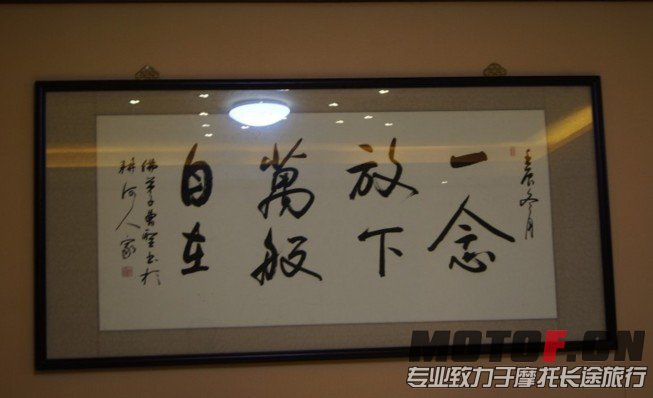 壬辰冬月
一念
放下
萬般
自在
佛弟子曹聖书於
人家
MOTOF.CN
专业致力于摩托长途旅行